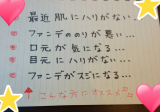 最近 肌にハリがない…
ファンデののりが悪い…
口元が気になる…
目元にハリがない…
ファンデがスジになる…
↑こんな方にオススメ